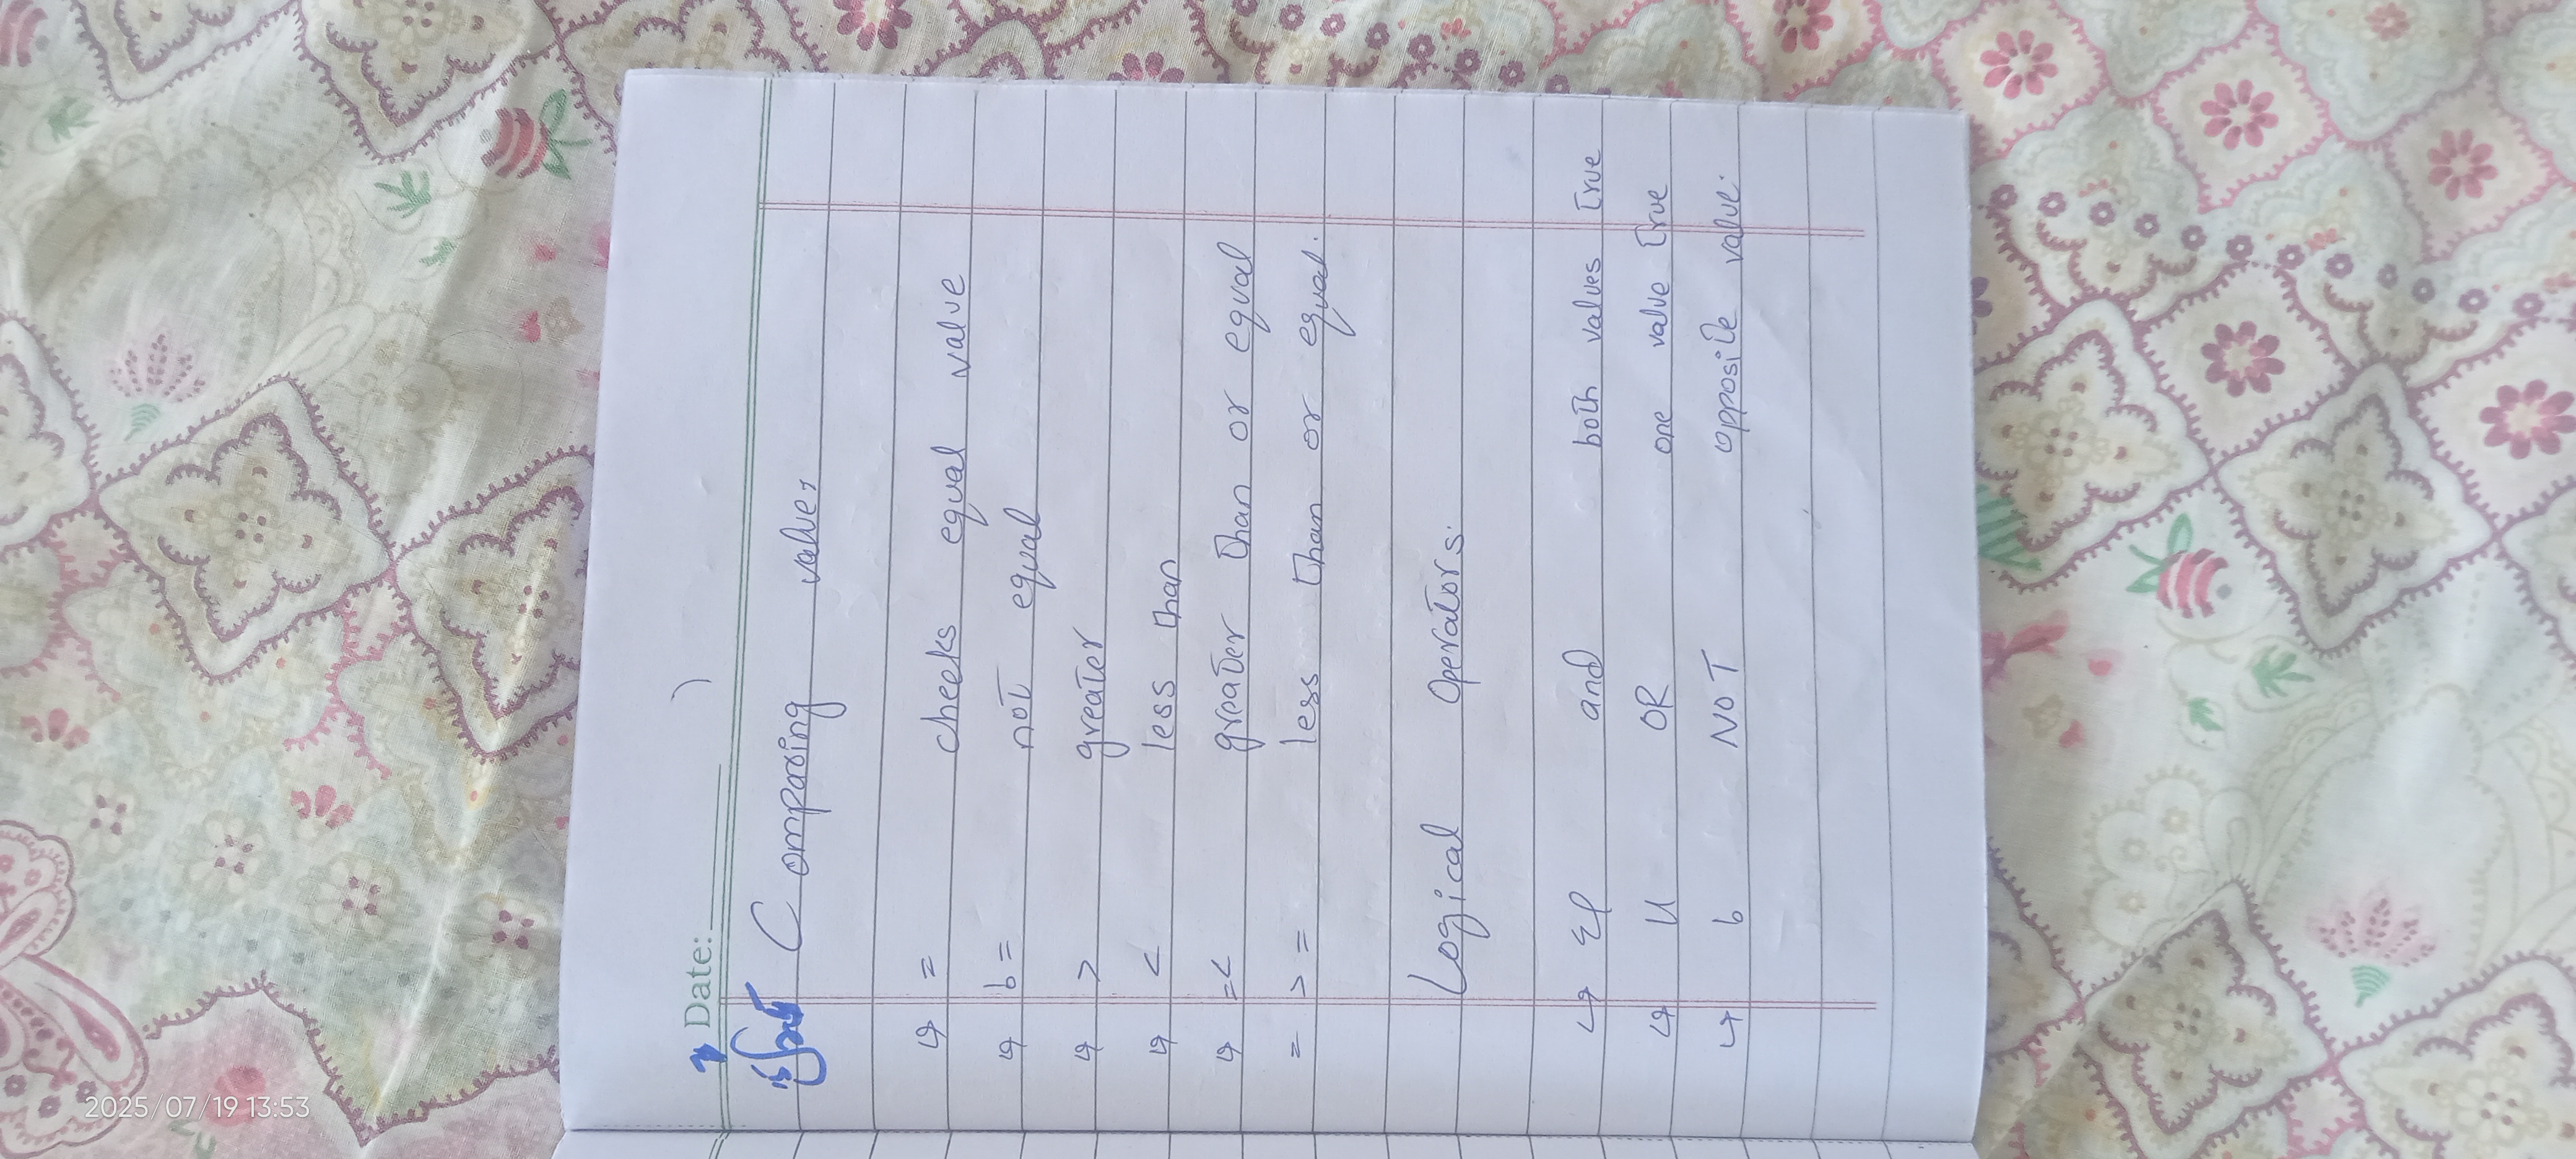 2025/07/19 13:53
Date:
Comparing values
↳ = cheeks equal value
↳ b = not equal
↳ > greater
↳ < less than
↳ =< greater than or equal
= > = less than or equal.
Logical Operators.
↳ and both values true
↳ U OR one value true
↳ b NOT opposite value.